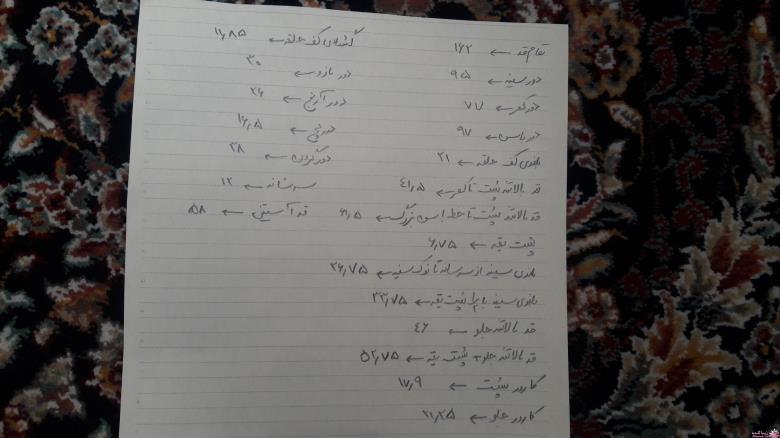 تمام قد ← ۱۶۲ گشادی کف حلقه ← ۱۱٫۸۵
دور سینه ← ۹۵ دور بازو ← ۳۰
دور کمر ← ۷۷ دور آرنج ← ۲۶
دور باسن ← ۹۷ دور مچ ← ۱۶٫۵
بلندی کف حلقه ← ۲۱ دور گردن ← ۳۸
قد بالاتنه پشت تا کمر ← ۴۱٫۵ سرشانه ← ۱۲
قد بالاتنه پشت تا خط باسن بزرگ ← ۶۱٫۵ قد آستین ← ۵۸
پشت یقه ← ۶٫۷۵
بلندی سینه از سرشانه تا نوک سینه ← ۲۶٫۷۵
بلندی سینه با پشت یقه ← ۳۳٫۷۵
قد بالاتنه جلو ← ۴۶
قد بالاتنه جلو + پشت یقه ← ۵۲٫۷۵
کارور پشت ← ۱۷٫۹
کارور جلو ← ۲۱٫۲۵